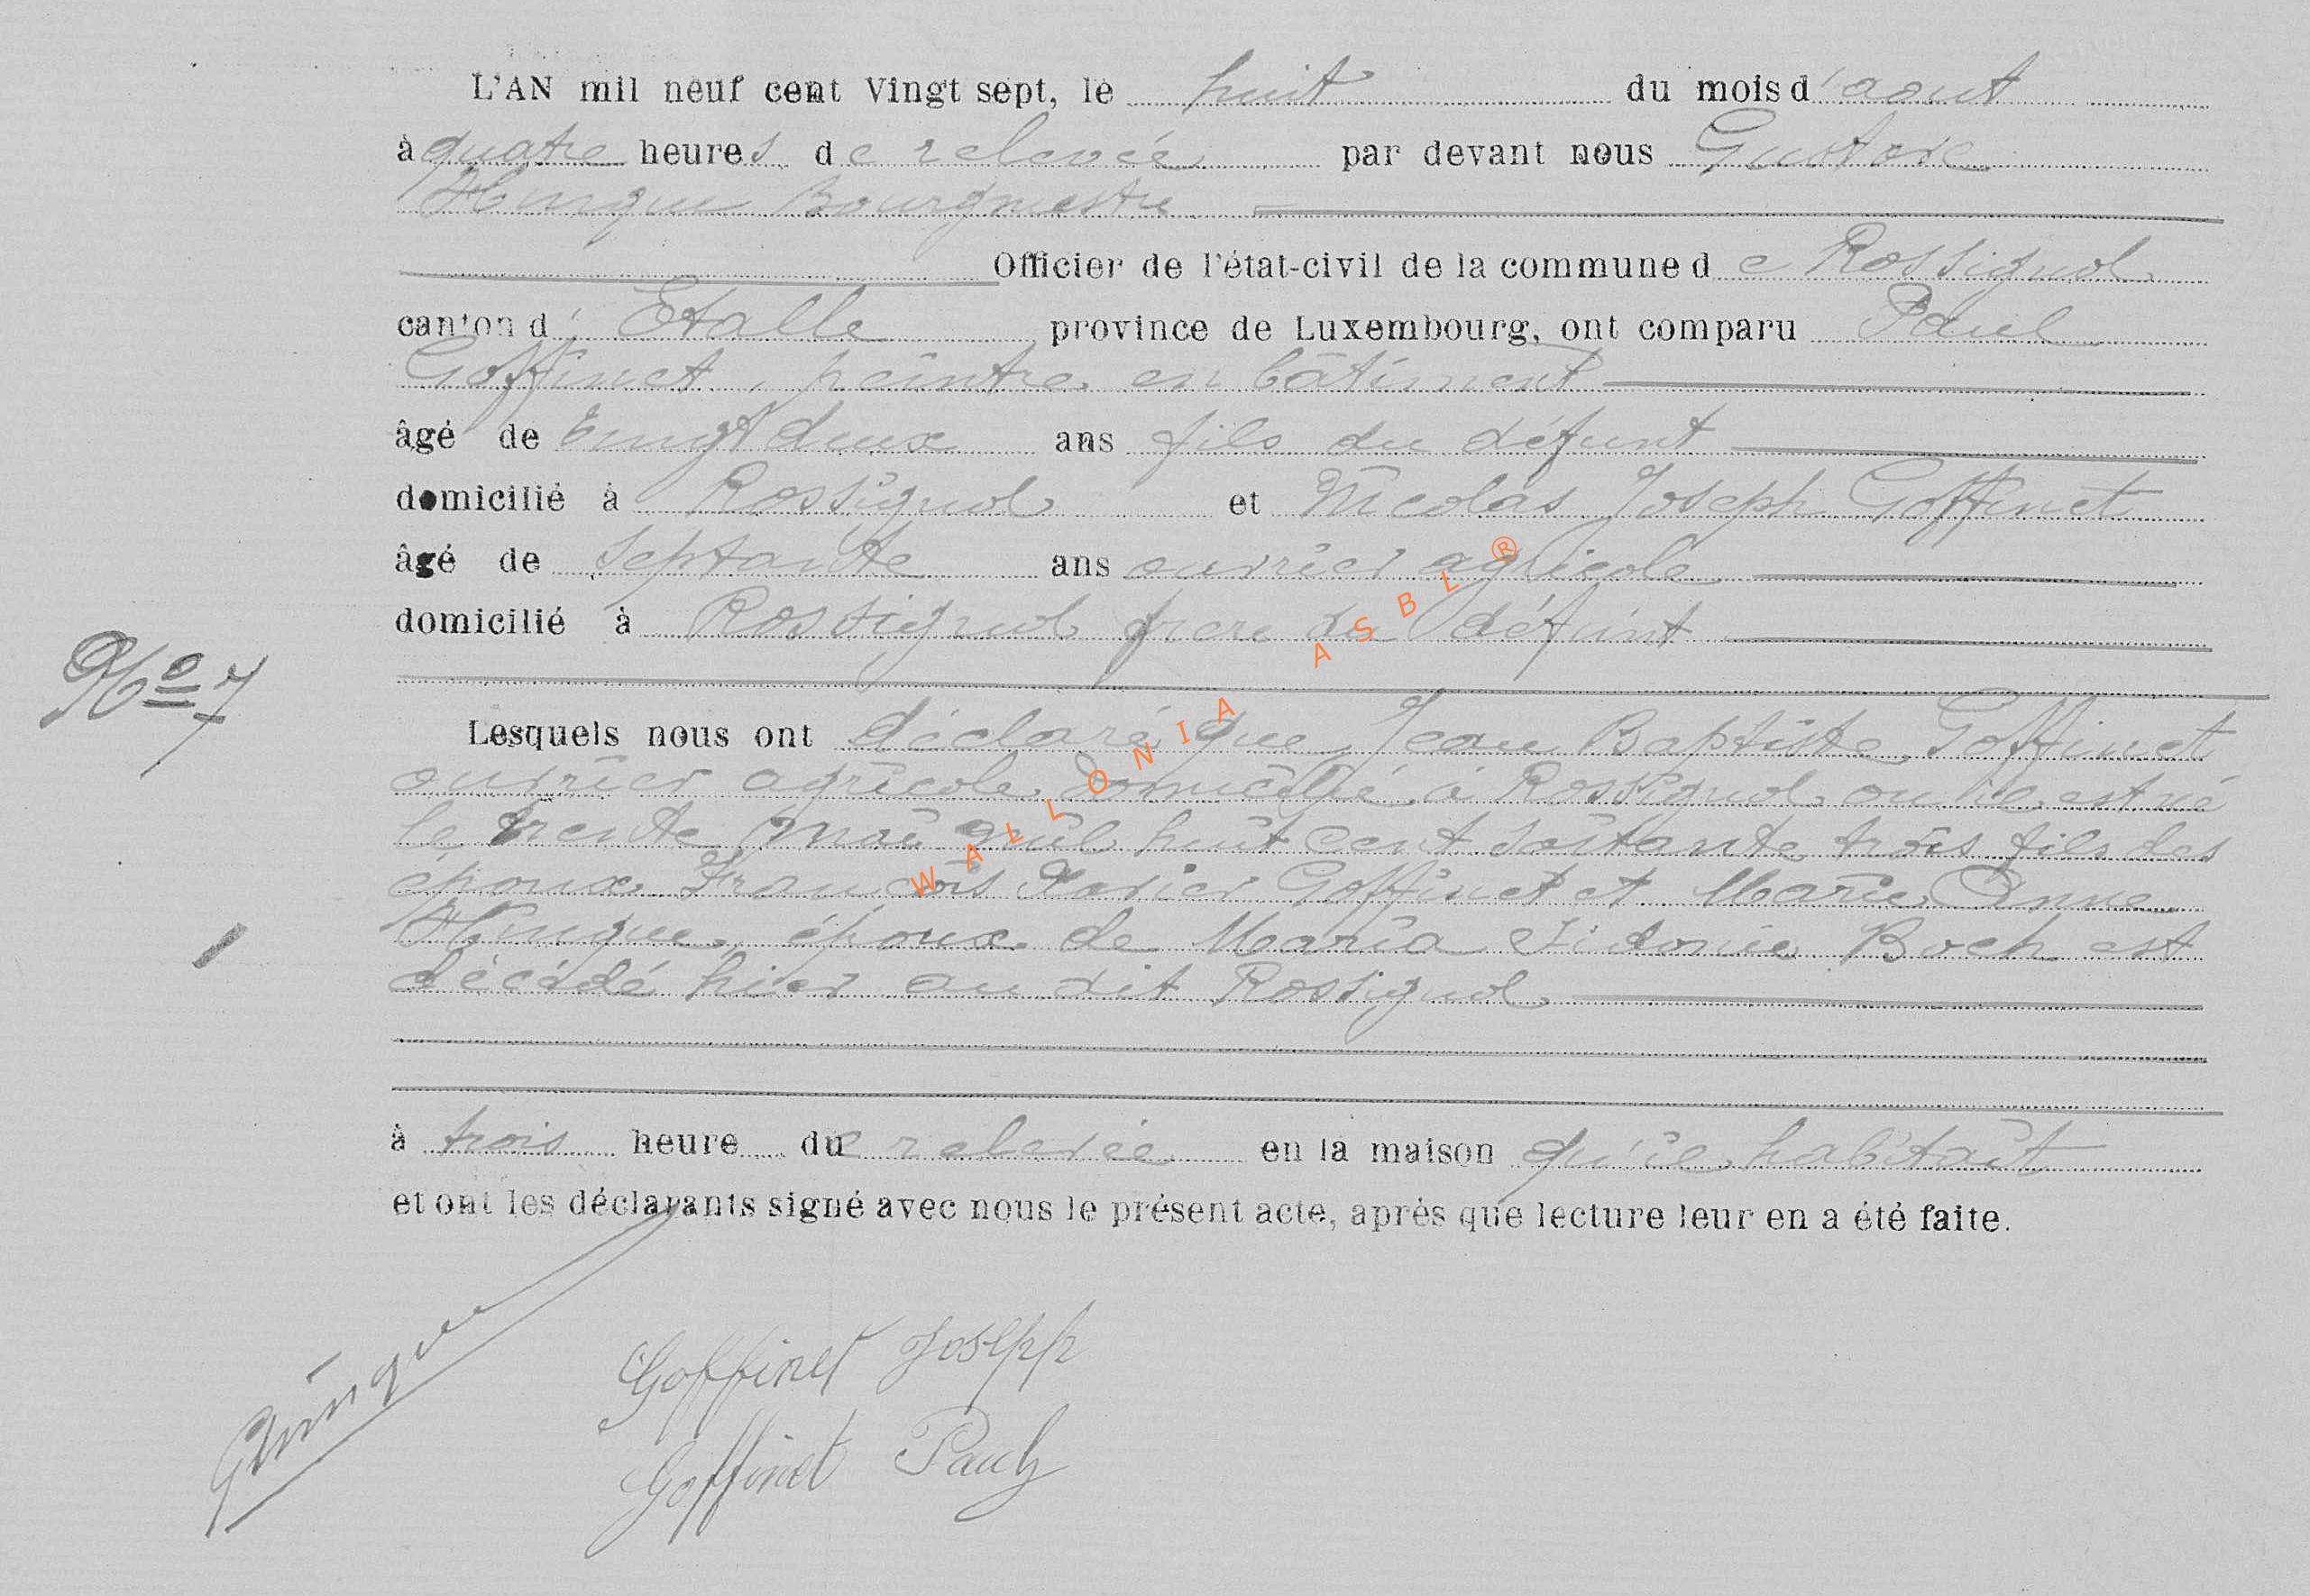 L'AN mil neuf cent vingt sept, le huit du mois d'aout
à quatre heures de relevée par devant nous Gustave
Hurique Bourgmestre
Officier de l'état-civil de la commune de Rossignol
canton d'Etalle province de Luxembourg, ont comparu Paul
Goffinet, peintre en bâtiment
âgé de vingt deux ans fils du défunt
domicilié à Rossignol et Nicolas Joseph Goffinet
âgé de septante ans ouvrier agricole
domicilié à Rossignol frere du défunt
No 7
Lesquels nous ont déclaré que Jean Baptiste Goffinet
ouvrier agricole domicilié à Rossignol où il est né
le trente mai mil huit cent soixante trois fils des
époux François Xavier Goffinet et Marie Anne
Hurique, époux de Maria Sidonie Boch est
décédé hier au dit Rossignol
à trois heure du relevée en la maison qu'il habitait
et ont les déclarants signé avec nous le présent acte, après que lecture leur en a été faite.
Goffinet Joseph
Goffinet Paul
WALLONIA ASBL ®